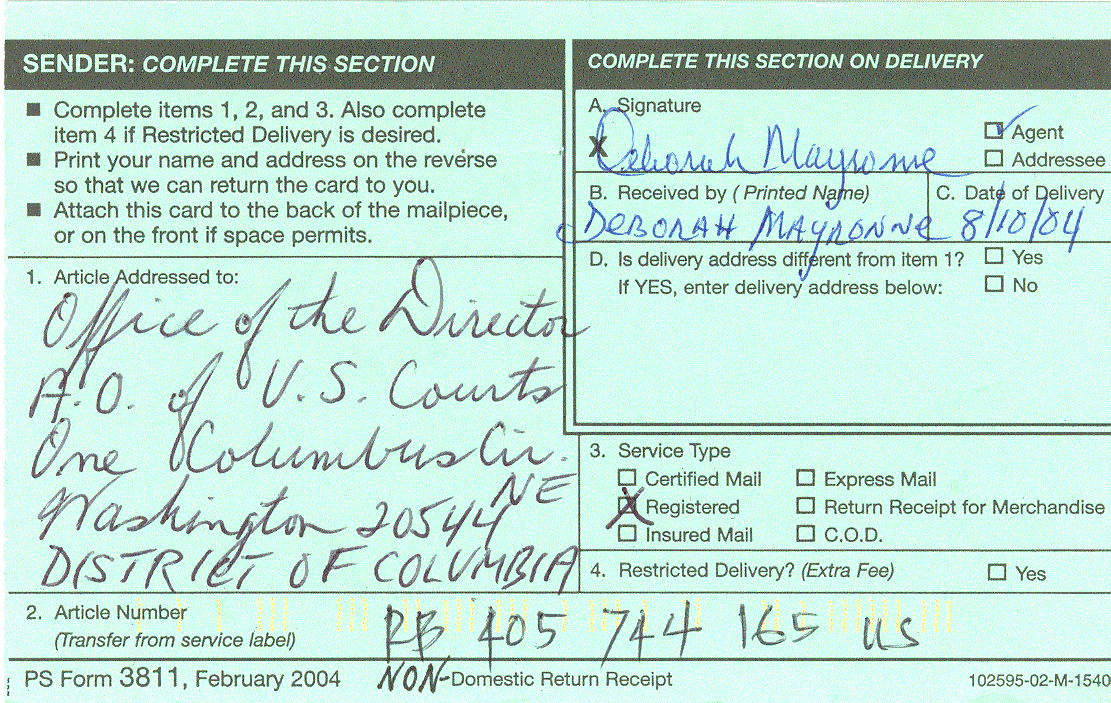 SENDER: COMPLETE THIS SECTION
■ Complete items 1, 2, and 3. Also complete
item 4 if Restricted Delivery is desired.
■ Print your name and address on the reverse
so that we can return the card to you.
■ Attach this card to the back of the mailpiece,
or on the front if space permits.
1. Article Addressed to:
Office of the Director
A.O. of U.S. Courts
One Columbus Cir.
NE
Washington 20544
DISTRICT OF COLUMBIA
2. Article Number
(Transfer from service label)
RB 405 744 165 US
COMPLETE THIS SECTION ON DELIVERY
A. Signature
X Deborah Mayronne
Agent
Addressee
B. Received by (Printed Name)
DEBORAH MAYRONNE
C. Date of Delivery
8/10/04
D. Is delivery address different from item 1? Yes
If YES, enter delivery address below: No
3. Service Type
Certified Mail Express Mail
Registered Return Receipt for Merchandise
Insured Mail C.O.D.
4. Restricted Delivery? (Extra Fee) Yes
PS Form 3811, February 2004 NON-Domestic Return Receipt 102595-02-M-1540